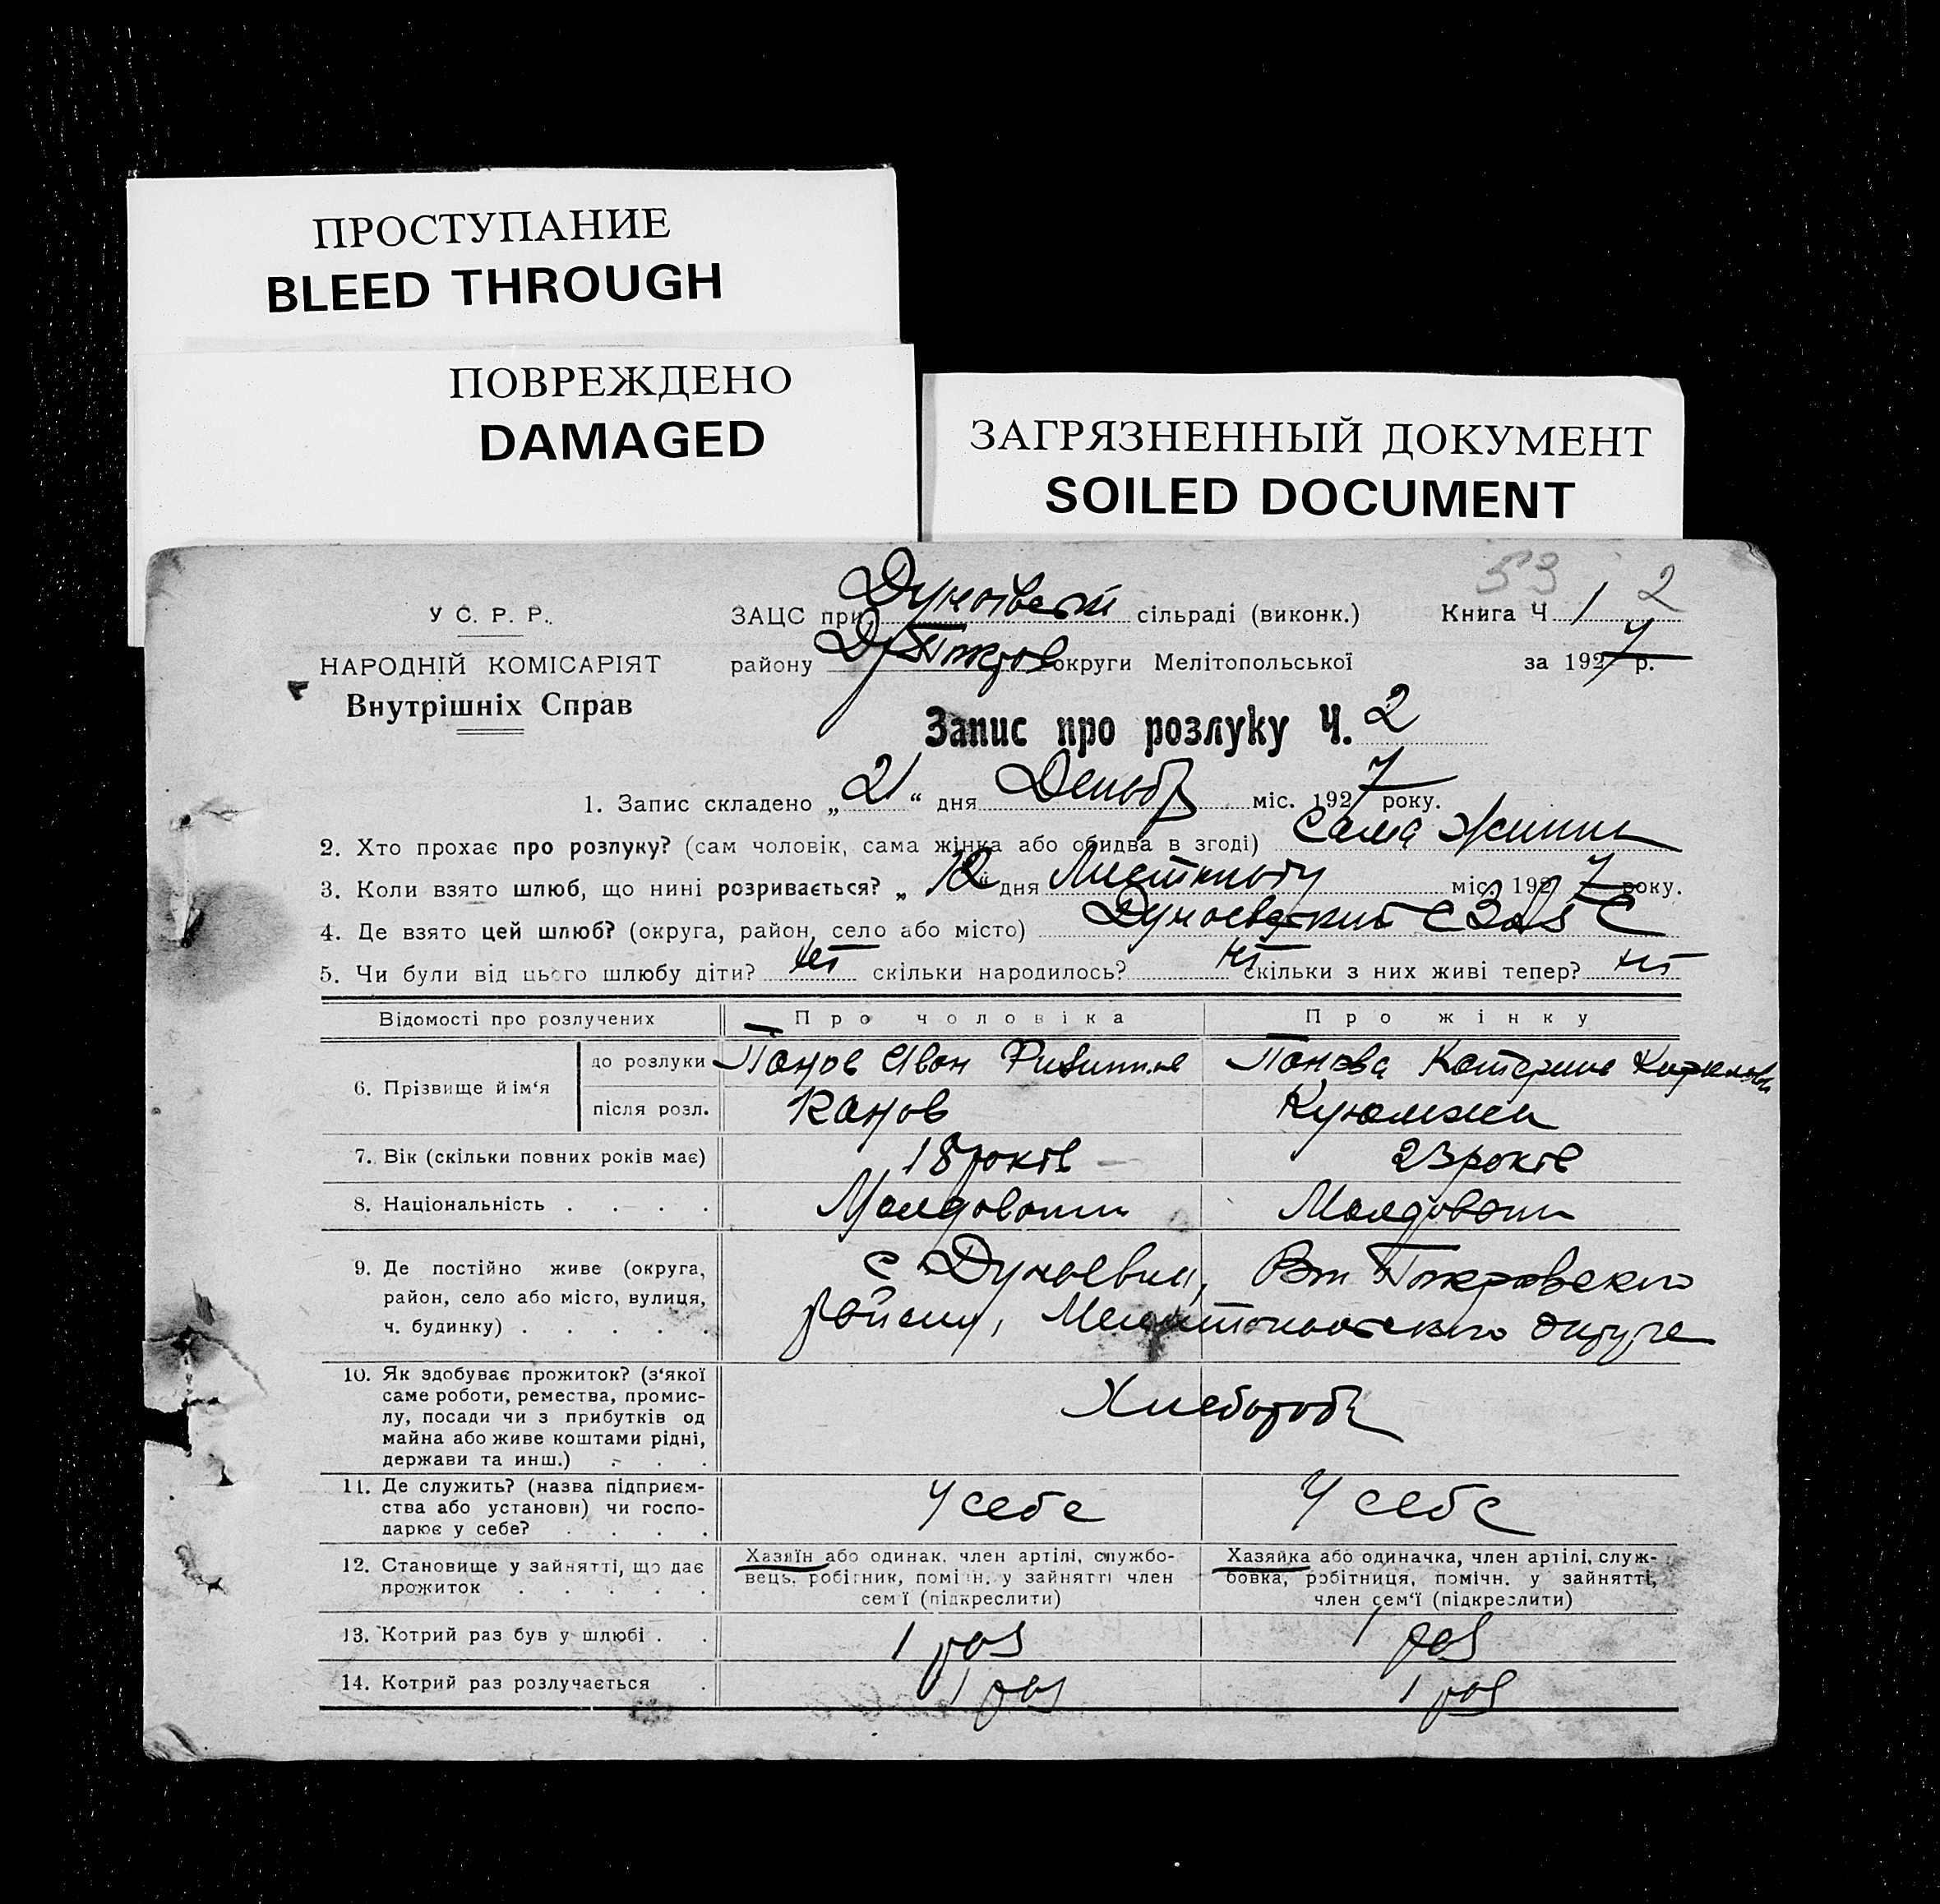 ПРОСТУПАНИЕ
BLEED THROUGH
ПОВРЕЖДЕНО
DAMAGED
ЗАГРЯЗНЕННЫЙ ДОКУМЕНТ
SOILED DOCUMENT
53 2
У С. Р. Р. ЗАЦС при сільраді (виконк.) Книга Ч 1
НАРОДНІЙ КОМІСАРІЯТ району округи Мелітопольської за 1927 р.
Внутрішніх Справ
Запис про розлуку Ч. 2
1. Запис складено „21“ дня міс. 1927 року.
2. Хто прохає про розлуку? (сам чоловік, сама жінка або обидва в згоді) Сама
3. Коли взято шлюб, що нині розривається? „ “ дня міс. 1927 року.
4. Де взято цей шлюб? (округа, район, село або місто)
5. Чи були від цього шлюбу діти? нет скільки народилось? нет скільки з них живі тепер? нет
Відомості про розлучених Про чоловіка Про жінку
6. Прізвище й ім‘я до розлуки Панов Іван Панова Катерина
після розл. Панов
7. Вік (скільки повних років має) 18 років 23 років
8. Національність . . . . Молдован Молдован
9. Де постійно живе (округа, с
район, село або місто, вулиця,
ч. будинку) . . . . .
10. Як здобуває прожиток? (з‘якої
саме роботи, ремества, промис-
лу, посади чи з прибутків од Хлебороб
майна або живе коштами рідні,
держави та инш.) . . .
11. Де служить? (назва підприєм-
ства або установи) чи госпо- У себе У себе
дарює у себе? . . . .
12. Становище у зайнятті, що дає Хазяїн або одинак, член артілі, службо- Хазяйка або одиначка, член артілі, служ-
прожиток . . . . . вець, робітник, помічн. у зайнятті член бовка, робітниця, помічн. у зайнятті,
сем‘ї (підкреслити) член сем‘ї (підкреслити)
13. Котрий раз був у шлюбі . . 1 раз 1 раз
14. Котрий раз розлучається . 1 раз 1 раз